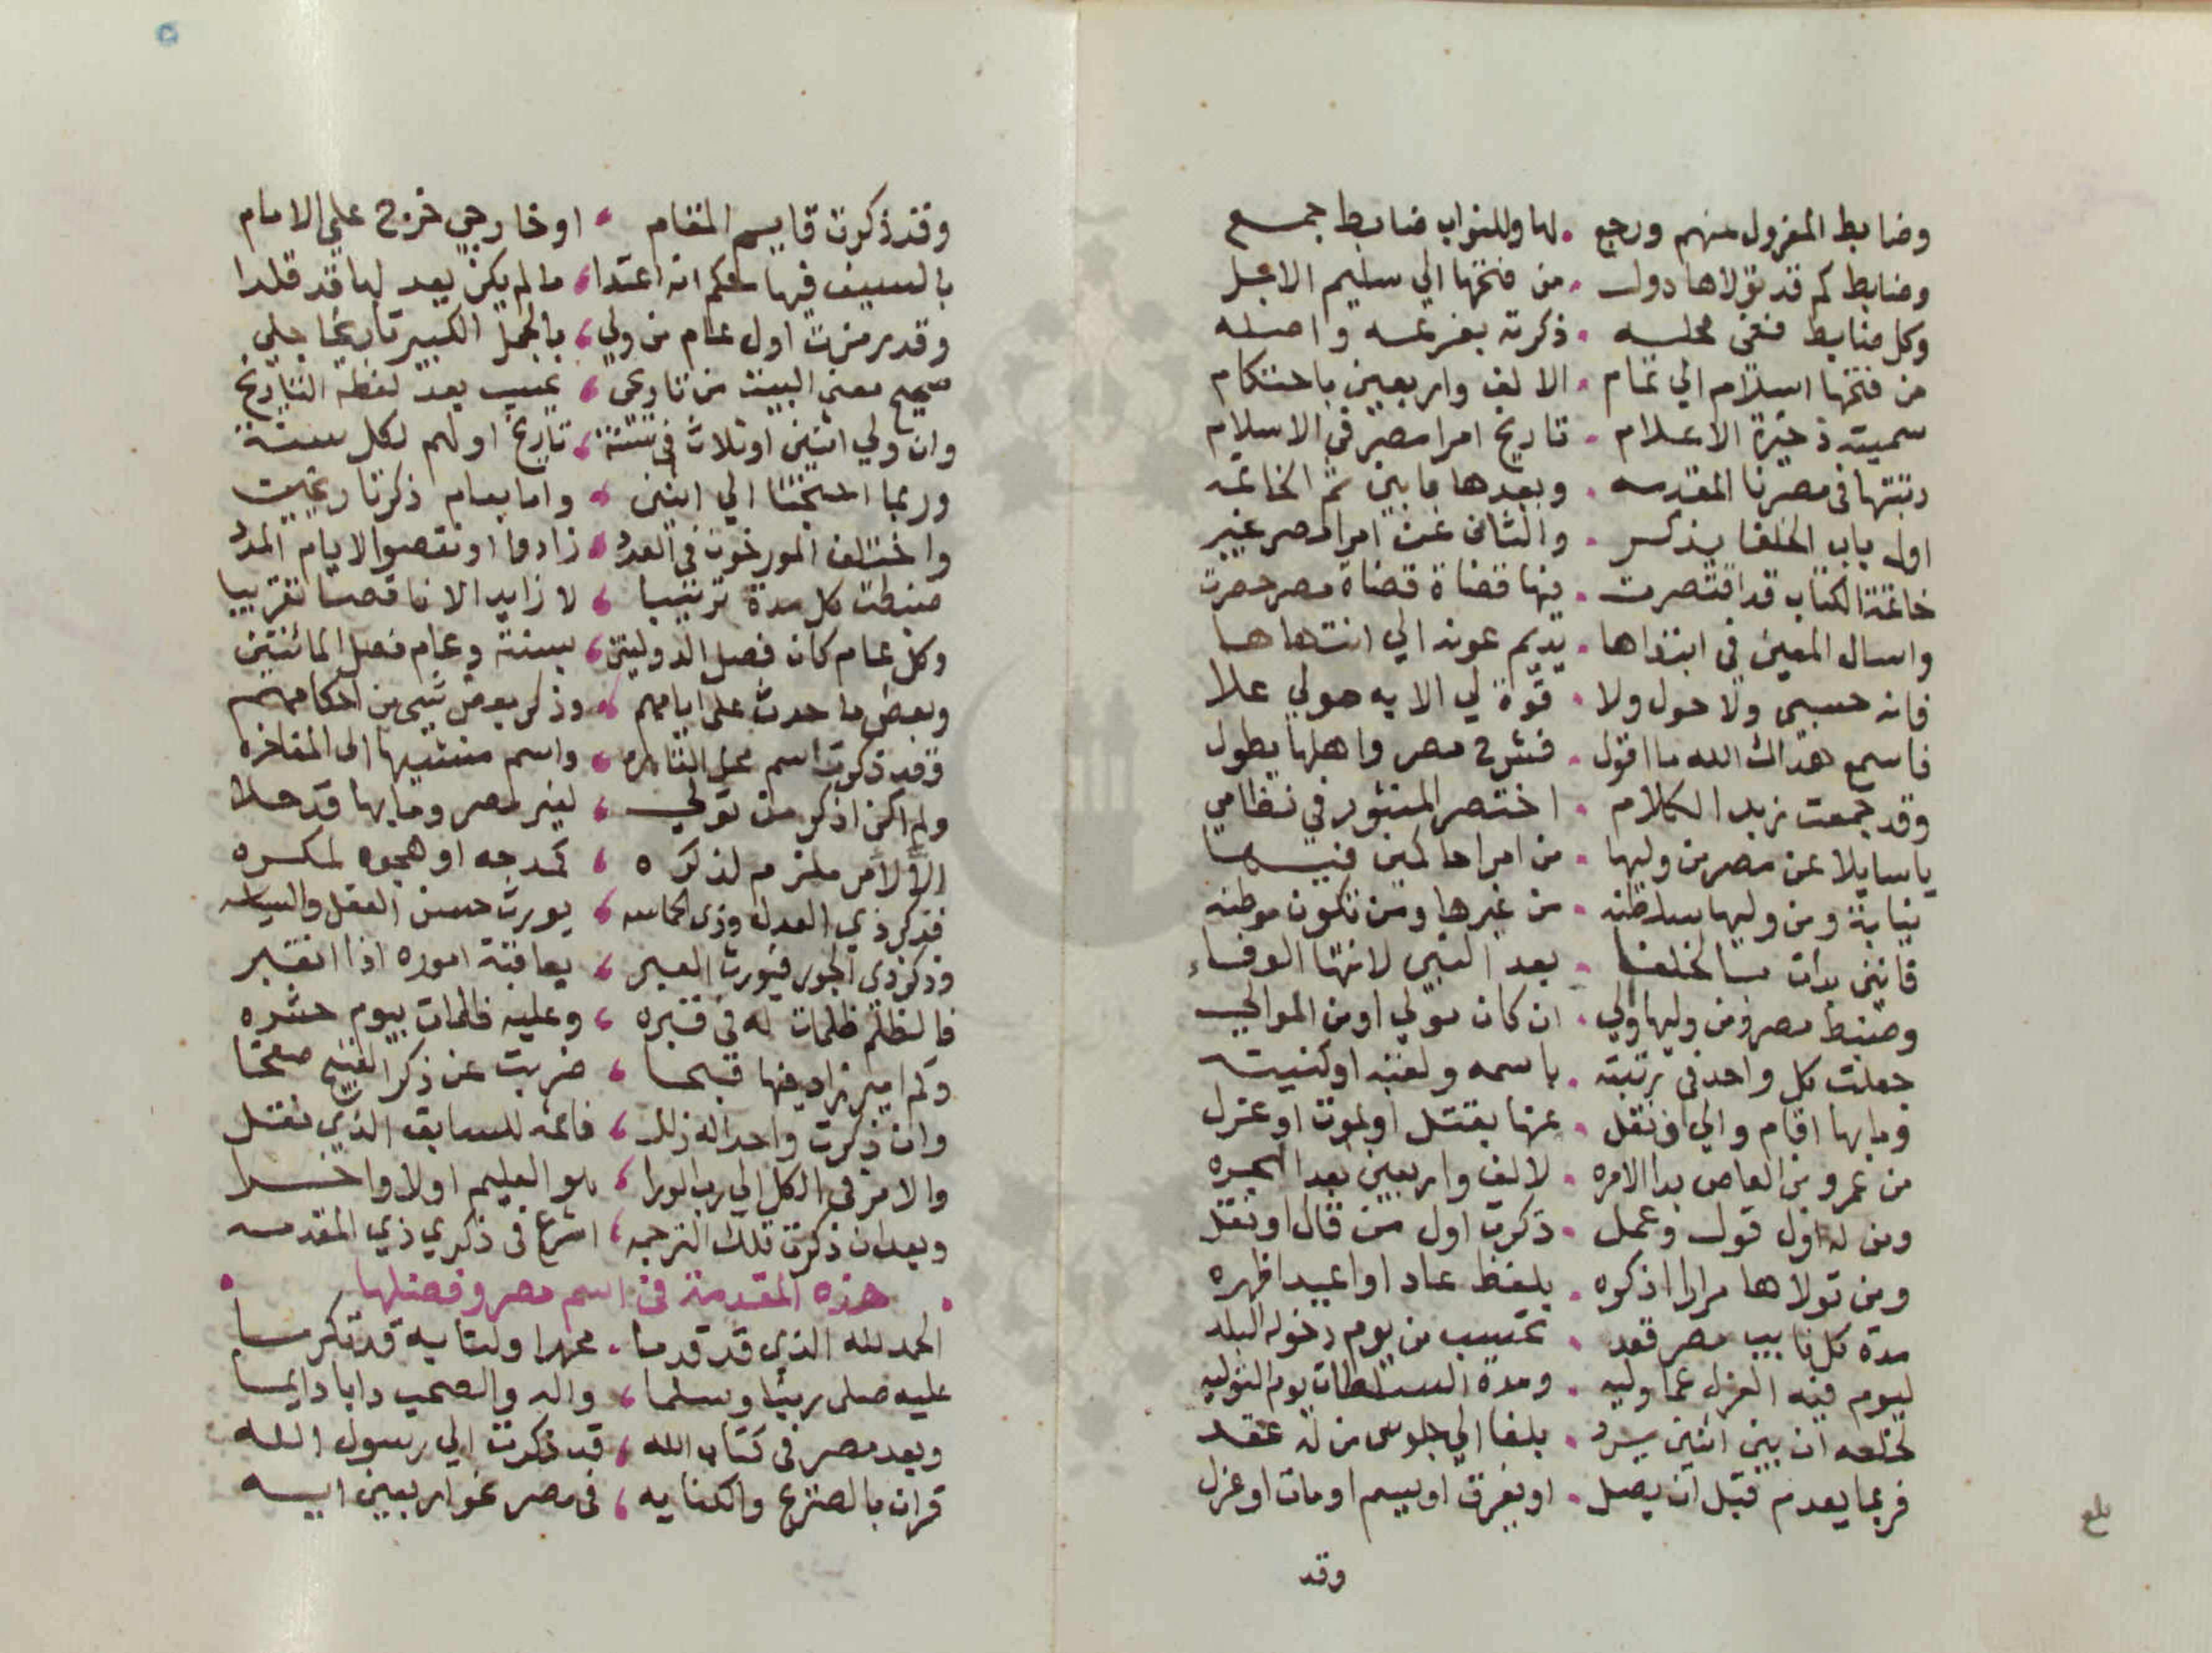 وضابط المعزول منهم ورجع . لها وللنواب ضابط جمع
وضابط كم قد تولاها دول . من فتحها الي سليم الاجل
وكل ضابط ففي محله . ذكرته بفرعه واصله
من فتحها اسلام الي تمام . الالف واربعين باحتكام
سميته ذخيرة الاعلام . تاريخ امرا مصر في الاسلام
رتبتها في مصرنا المقدمه . وبعدها بابين ثم الخاتمه
اول باب الخلفا يذكر . والثاني عن امراء مصر غبر
خاتمة الكتاب قد اقتصرت . فيها قضاة قضاة مصر حصرت
واسال المعين في ابتداها . يديم عونه الي انتهاها
فانه حسبي ولا حول ولا . قوة لي الا به هو لي علا
فاسمع هداك الله ما اقول . فشرح مصر واهلها يطول
وقد جمعت زبد الكلام . اختصر المنثور في نظامي
يا سايلا عن مصر من وليها . من امرا حاكمين فيها
نيابة ومن وليها سلطنه . من غيرها ومن تكون موطنه
فانني بدات بالخلفا . بعد النبي لانتها الوفاء
وضبط مصر ومن وليها ولي . ان كان مولي او من الموالي
جعلت كل واحد في رتبته . باسمه ولقبه او كنيته
وما بها اقام والي او نقل . عنها بقتل او بموت او عزل
من عمرو بن العاص بدا الامره . لالف واربعين بعد الهجره
ومن له اول قول وعمل . ذكرت اول من قال او نقل
ومن تولاها مرارا اذكره . بلفظ عاد او اعيد اظهره
مدة كل نايب مصر قعد . تحسب من يوم دخوله البلد
ليوم فيه العزل عما وليه . ومدة السلطان يوم التوليه
لخلعه ان بين اثنين يرد . بلفا الي جلوس من له عقد
فربما يعدم قبل ان يصل . او يغرق او يسم او مات او عزل
وقد
بلغ
وقد ذكرت قايم المقام ، او خارجي خرج علي الامام
بالسيف فيها حكم انه اعتدا ، ما لم يكن بعد لها قد قلدا
وقد رمزت اول عام من ولي ، بالجمل الكبير تاريخا جلي
صحيح معنى البيت من تاريخي ، تحسب بعد لفظة التاريخ
وان ولي اثنين او ثلاث في سنة ، تاريخ اولهم لكل سنة
وربما احتجنا الي اثنين ، واما بعام ذكرنا
واختلف المورخون في العدد ، زادوا او نقصوا لايام المدد
ضبطت كل مدة ترتيبا ، لا زايد الا ناقصا تقريبا
وكل عام كان فصل الدولتين ، بسنة وعام فصل المائتين
وبعض ما حدث على ايامهم ، وذكر بعض شي من احكامهم
وقد ذكرت اسم عمل القاهره ، واسم منشيها الى المفاخره
ولم اكن اذكر من تولي ، لغير مصر وما بها قد حلا
الا لامر ملزم لذكره ، كمدحه او هجوه لمكره
فذكر ذي العدل وذي الحماسه ، يورث حسن العقل والسياسه
وذكر ذي الجور فيورث العبر ، بعاقبة اموره اذا اعتبر
فالظلم ظلمات له في قبره ، وعليه ظلمات بيوم حشره
وكم امير زاد فيها قبحا ، ضربت عن ذكر القبيح صفحا
وان ذكرت واحدا له زلل ، فاثمه للسابق الذي نقل
والامر في الكل الي رب الورا ، هو العليم اولا واخرا
وبعد ان ذكرت تلك الترجمه ، اشرع في ذكري ذي المقدمه
هذه المقدمة في اسم مصر وفضلها
الحمد لله الذي قد قدما . محمدا ولنا به قد تكرما
عليه صلى ربنا وسلما ، واله والصحب دابا دايما
وبعد مصر في كتاب الله ، قد ذكرت الي رسول الله
قران بالصريح والكنايه ، في مصر نحو اربعين ايه